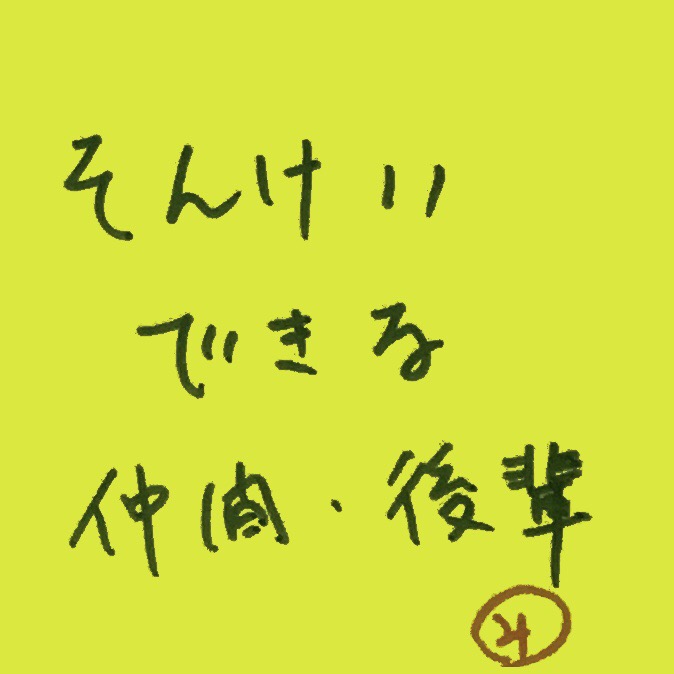 そんけい
できる
仲間・後輩